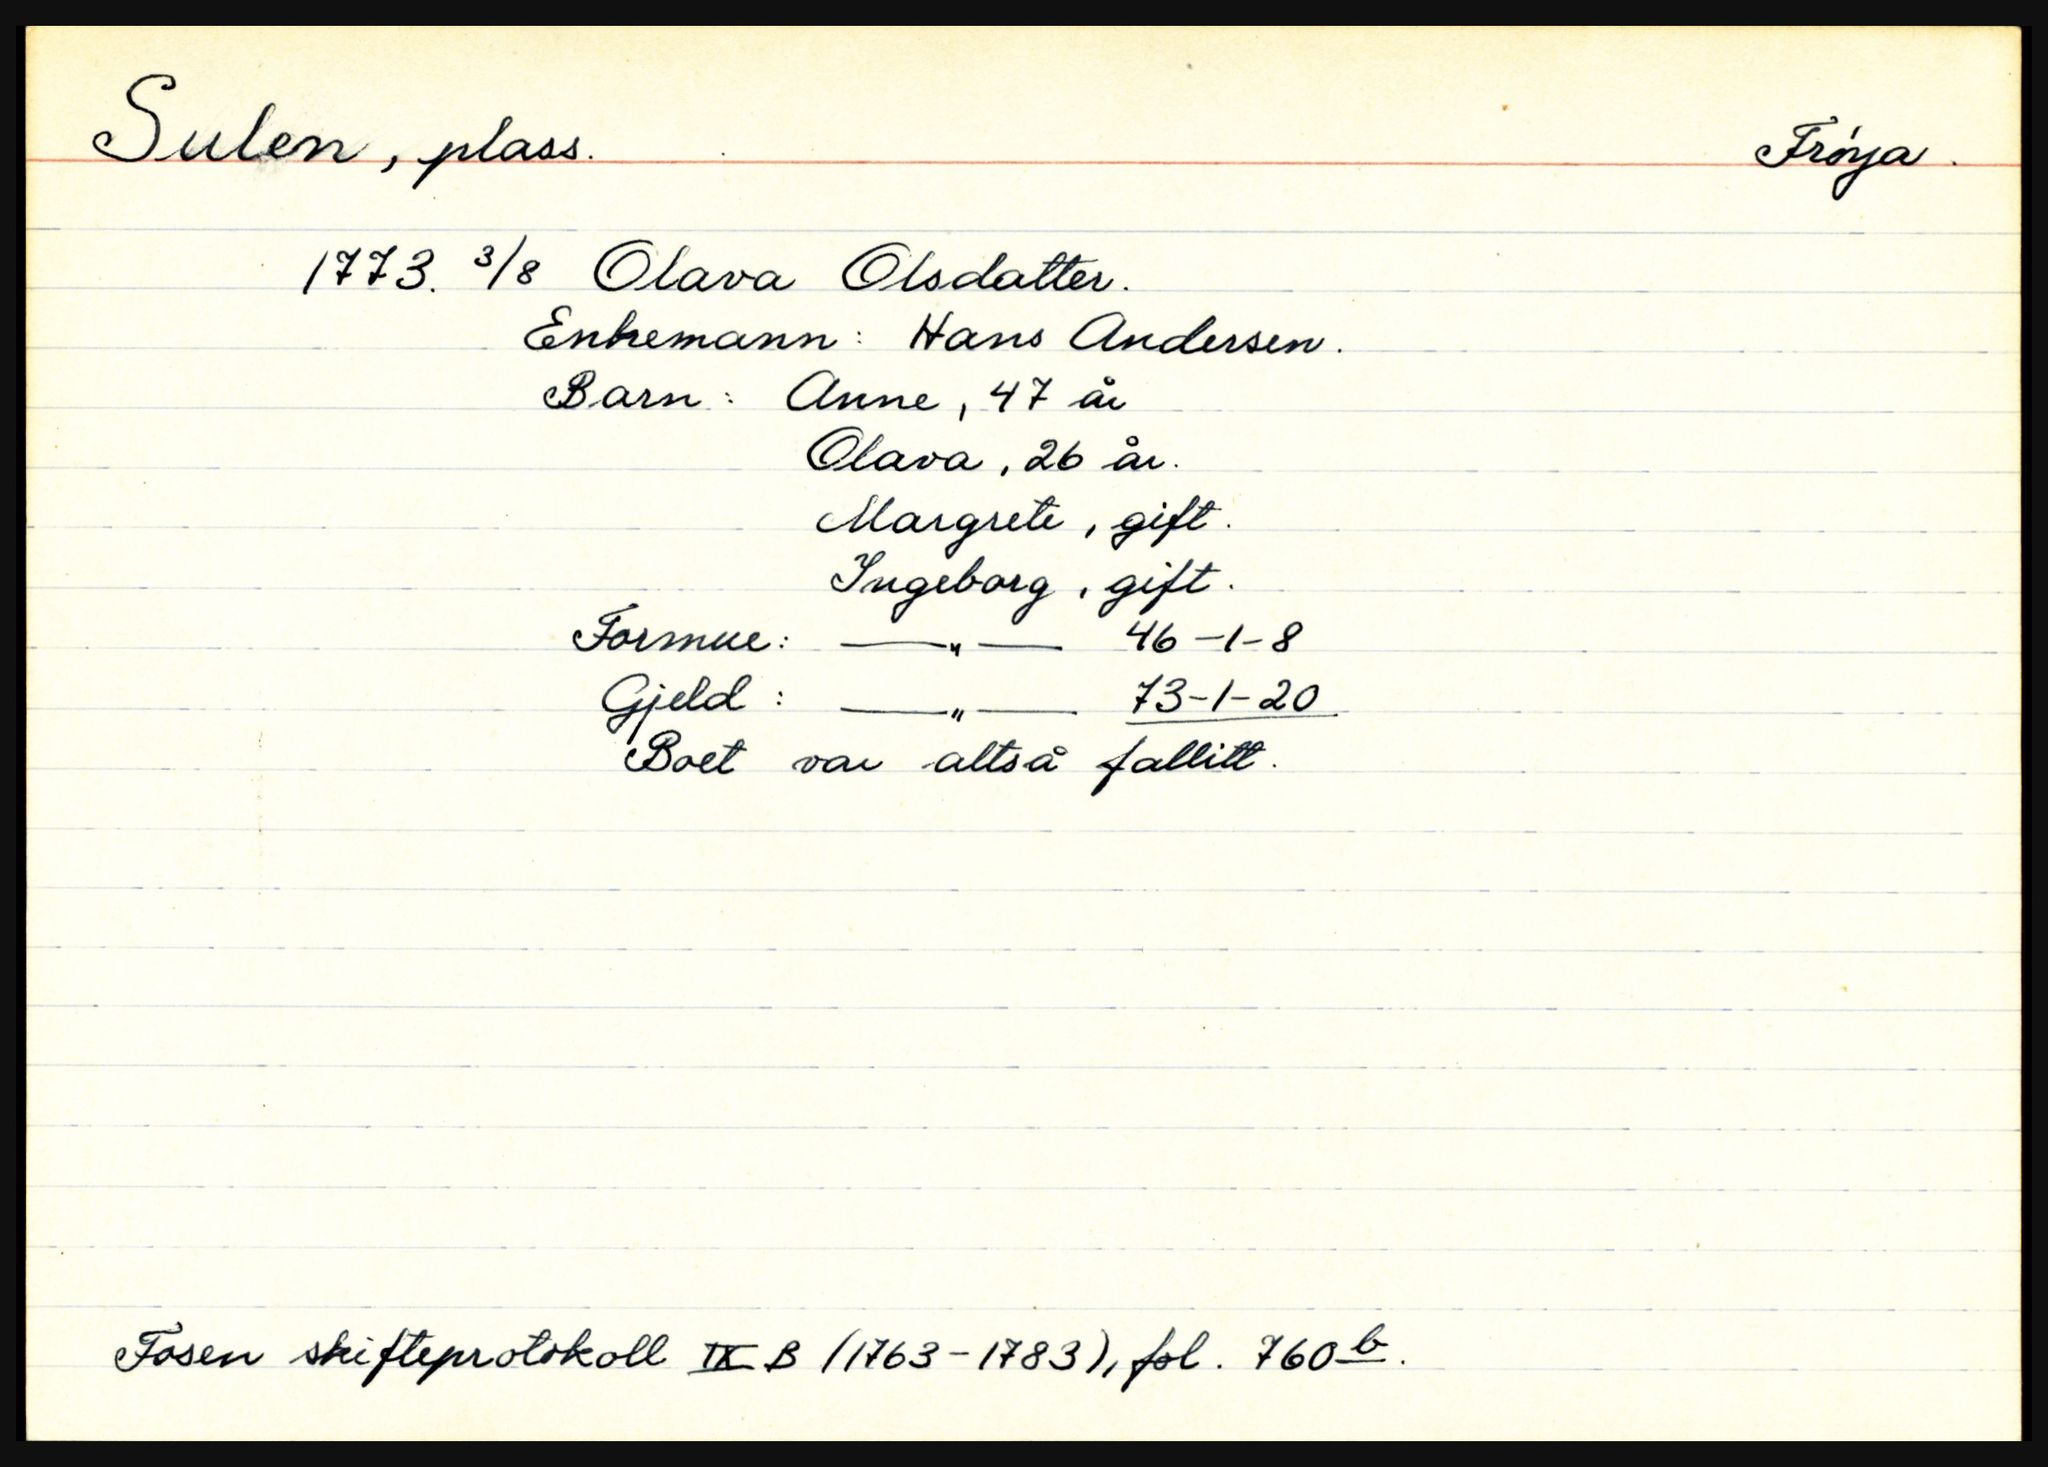 Sulen, plass. Frøya.
1773. 3/8 Olava Olsdatter.
Enkemann: Hans Andersen.
Barn: Anne, 47 år
Olava, 26 år.
Margrete, gift.
Ingeborg, gift.
Formue: —„— 46-1-8
Gjeld: —„— 73-1-20
Boet var altså fallitt.
Fosen skifteprotokoll IX B (1763-1783), fol. 760b.